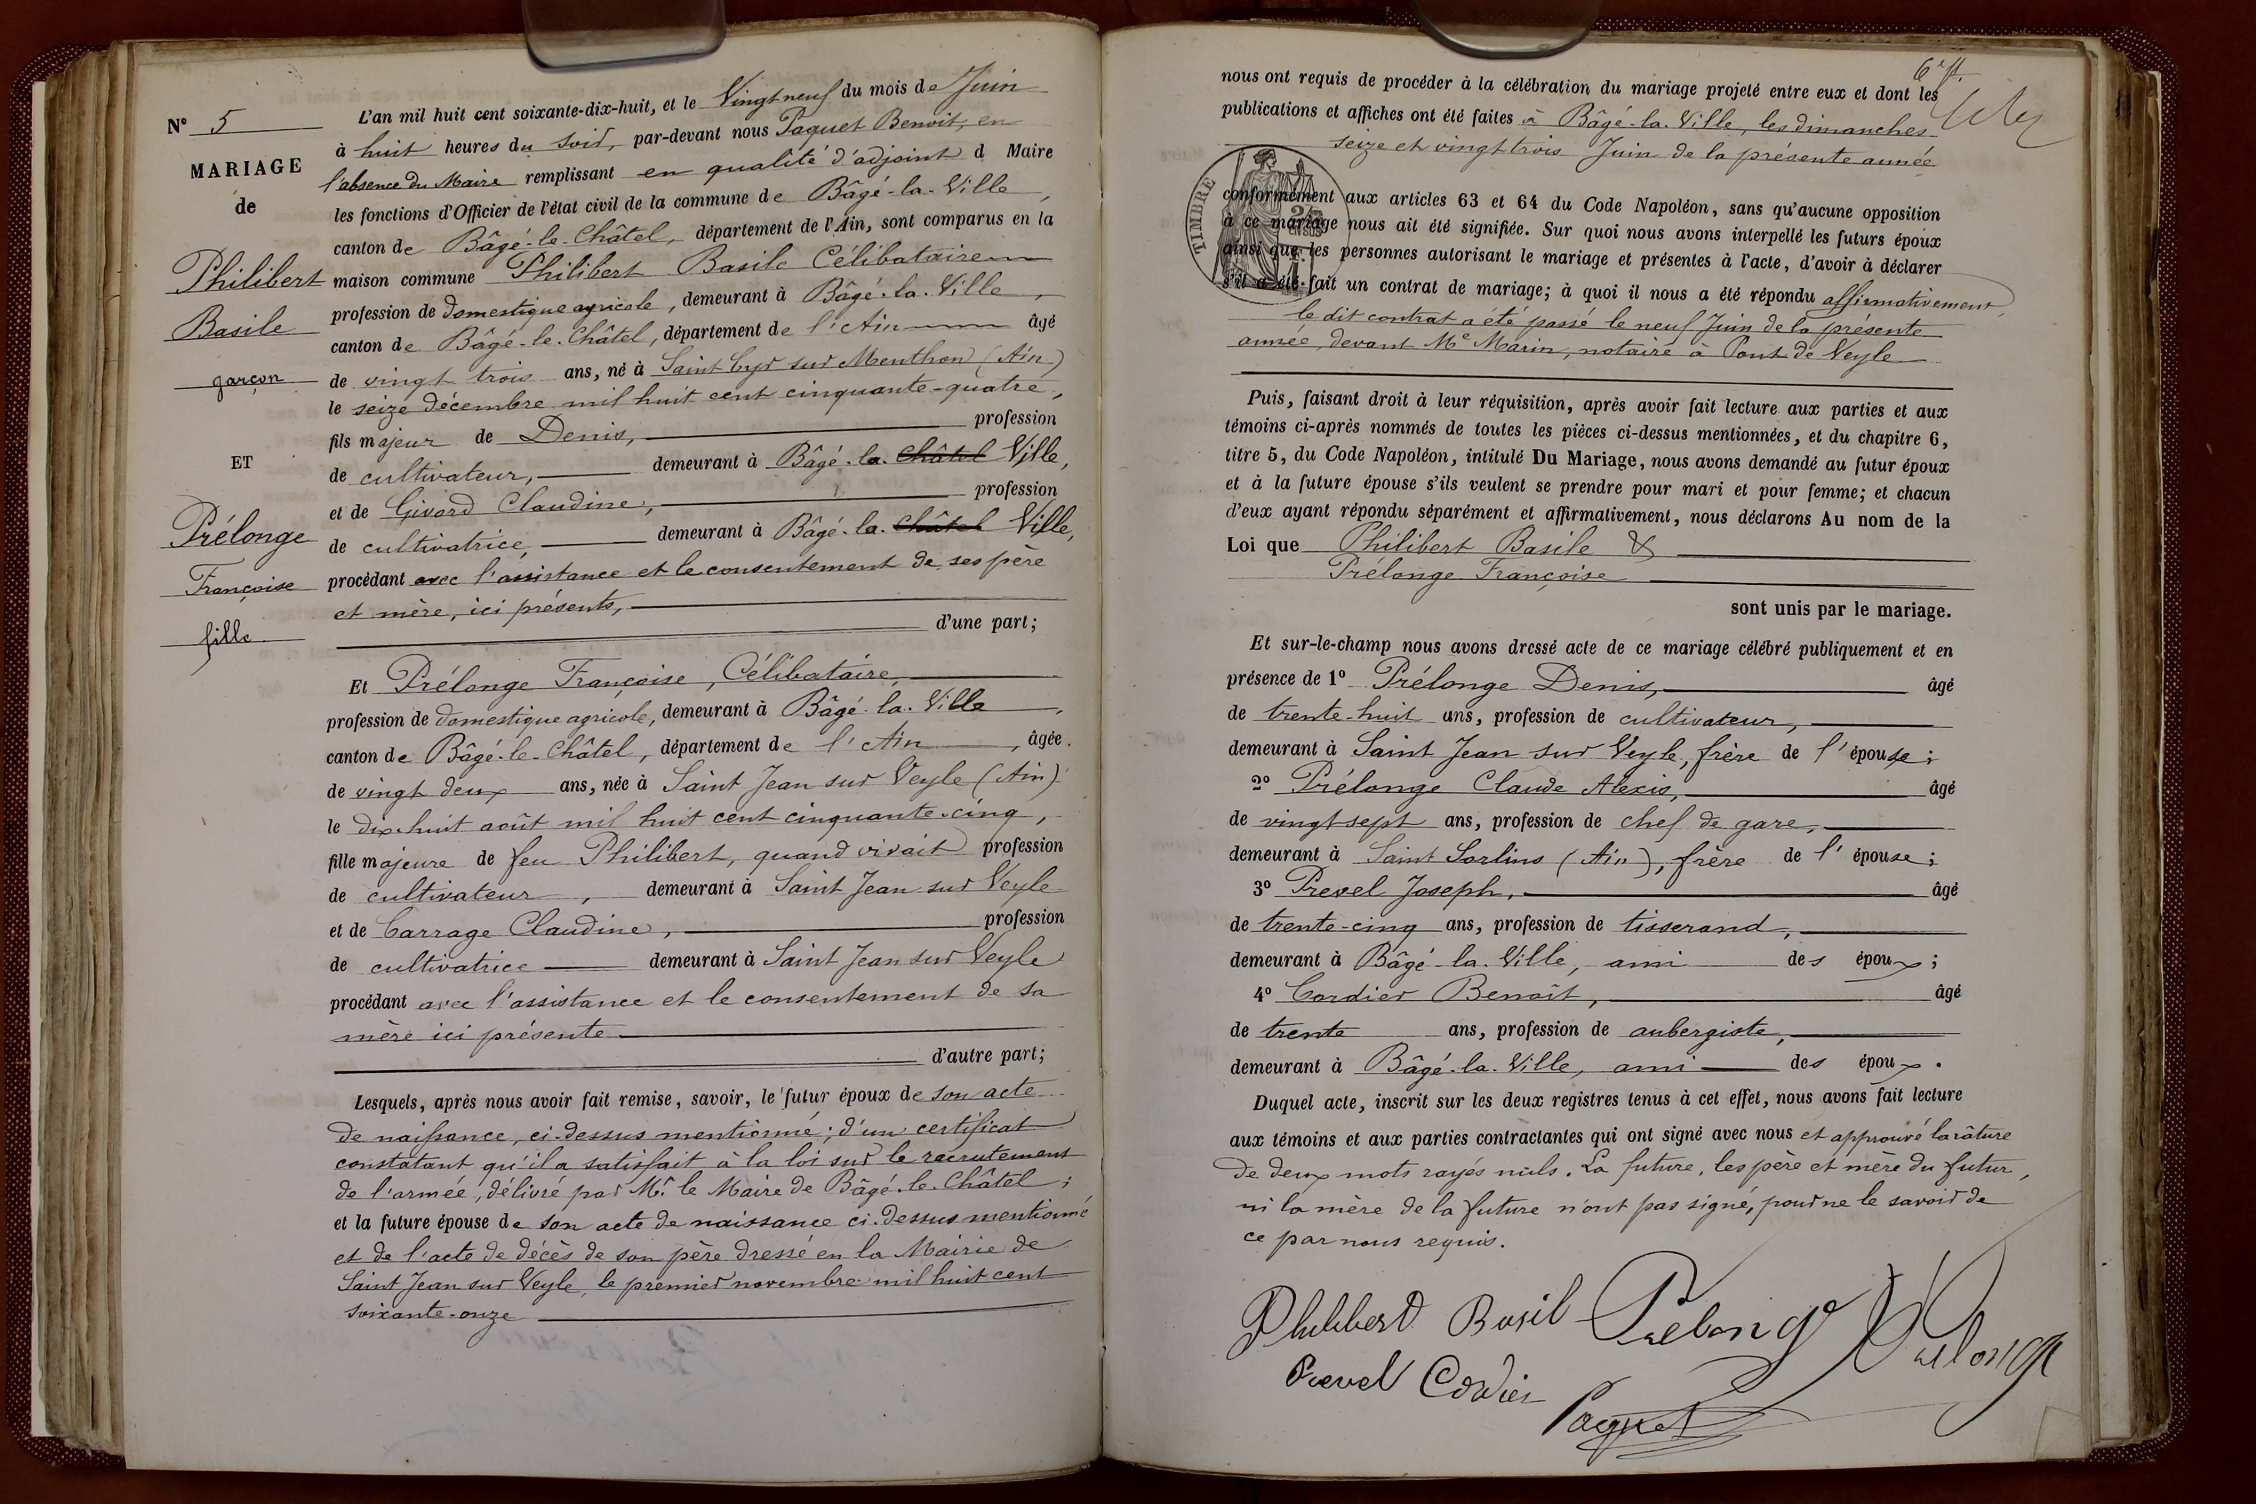 N° 5
MARIAGE
de
Philibert
Basile
garçon
ET
Prélonge
Françoise
fille
L'an mil huit cent soixante-dix-huit, et le Vingt neuf du mois de Juin
à huit heures du soir, par-devant nous Paquet Benoit, en
l'absence du Maire remplissant en qualité d'adjoint d Maire
les fonctions d'Officier de l'état civil de la commune de Bâgé-la-Ville,
canton de Bâgé-le-Châtel, département de l'Ain, sont comparus en la
maison commune Philibert Basile Célibataire
profession de domestique agricole, demeurant à Bâgé-la-Ville,
canton de Bâgé-le-Châtel, département de l'Ain âgé
de vingt trois ans, né à Saint Cyr sur Menthon (Ain)
le seize décembre mil huit cent cinquante-quatre,
fils majeur de Denis, profession
de cultivateur, demeurant à Bâgé-la-Châtel Ville,
et de Givord Claudine, profession
de cultivatrice, demeurant à Bâgé-la-Châtel Ville,
procédant avec l'assistance et le consentement de ses père
et mère, ici présents,
d'une part;
Et Prélonge Françoise, Célibataire,
profession de domestique agricole, demeurant à Bâgé-la-Ville,
canton de Bâgé-le-Châtel, département de l'Ain, âgée
de vingt deux ans, née à Saint Jean sur Veyle (Ain)
le dix-huit août mil huit cent cinquante-cinq,
fille majeure de feu Philibert, quand vivait profession
de cultivateur, demeurant à Saint Jean sur Veyle
et de Carrage Claudine, profession
de cultivatrice demeurant à Saint Jean sur Veyle
procédant avec l'assistance et le consentement de sa
mère ici présente
d'autre part;
Lesquels, après nous avoir fait remise, savoir, le futur époux de son acte
de naissance, ci-dessus mentionné; d'un certificat
constatant qu'il a satisfait à la loi sur le recrutement
de l'armée, délivré par Mr le Maire de Bâgé-le-Châtel;
et la future épouse de son acte de naissance ci-dessus mentionné
et de l'acte de décès de son père dressé en la Mairie de
Saint Jean sur Veyle, le premier novembre mil huit cent
soixante-onze
nous ont requis de procéder à la célébration du mariage projeté entre eux et dont les
publications et affiches ont été faites à Bâgé-la-Ville, les dimanches
seize et vingt trois Juin de la présente année
TIMBRE
conformément aux articles 63 et 64 du Code Napoléon, sans qu'aucune opposition
à ce mariage nous ait été signifiée. Sur quoi nous avons interpellé les futurs époux
ainsi que les personnes autorisant le mariage et présentes à l'acte, d'avoir à déclarer
s'il a été fait un contrat de mariage; à quoi il nous a été répondu affirmativement,
le dit contrat a été passé le neuf Juin de la présente
année, devant Me Marin, notaire à Pont de Veyle
Puis, faisant droit à leur réquisition, après avoir fait lecture aux parties et aux
témoins ci-après nommés de toutes les pièces ci-dessus mentionnées, et du chapitre 6,
titre 5, du Code Napoléon, intitulé Du Mariage, nous avons demandé au futur époux
et à la future épouse s'ils veulent se prendre pour mari et pour femme; et chacun
d'eux ayant répondu séparément et affirmativement, nous déclarons Au nom de la
Loi que Philibert Basile &
Prélonge Françoise
sont unis par le mariage.
Et sur-le-champ nous avons dressé acte de ce mariage célébré publiquement et en
présence de 1° Prélonge Denis, âgé
de trente-huit ans, profession de cultivateur,
demeurant à Saint Jean sur Veyle, frère de l'épouse;
2° Prélonge Claude Alexis, âgé
de vingt sept ans, profession de chef de gare,
demeurant à Saint Sorlins (Ain), frère de l'épouse;
3° Prevel Joseph, âgé
de trente-cinq ans, profession de tisserand,
demeurant à Bâgé-la-Ville, ami des époux;
4° Cordier Benoît, âgé
de trente ans, profession de aubergiste,
demeurant à Bâgé-la-Ville, ami des époux.
Duquel acte, inscrit sur les deux registres tenus à cet effet, nous avons fait lecture
aux témoins et aux parties contractantes qui ont signé avec nous et approuvé la râture
de deux mots rayés nuls. La future, les père et mère du futur,
ni la mère de la future n'ont pas signé, pour ne le savoir de
ce par nous requis.
Philibert Basil Prelonge Prelonge
Prevel Cordier
Paquet